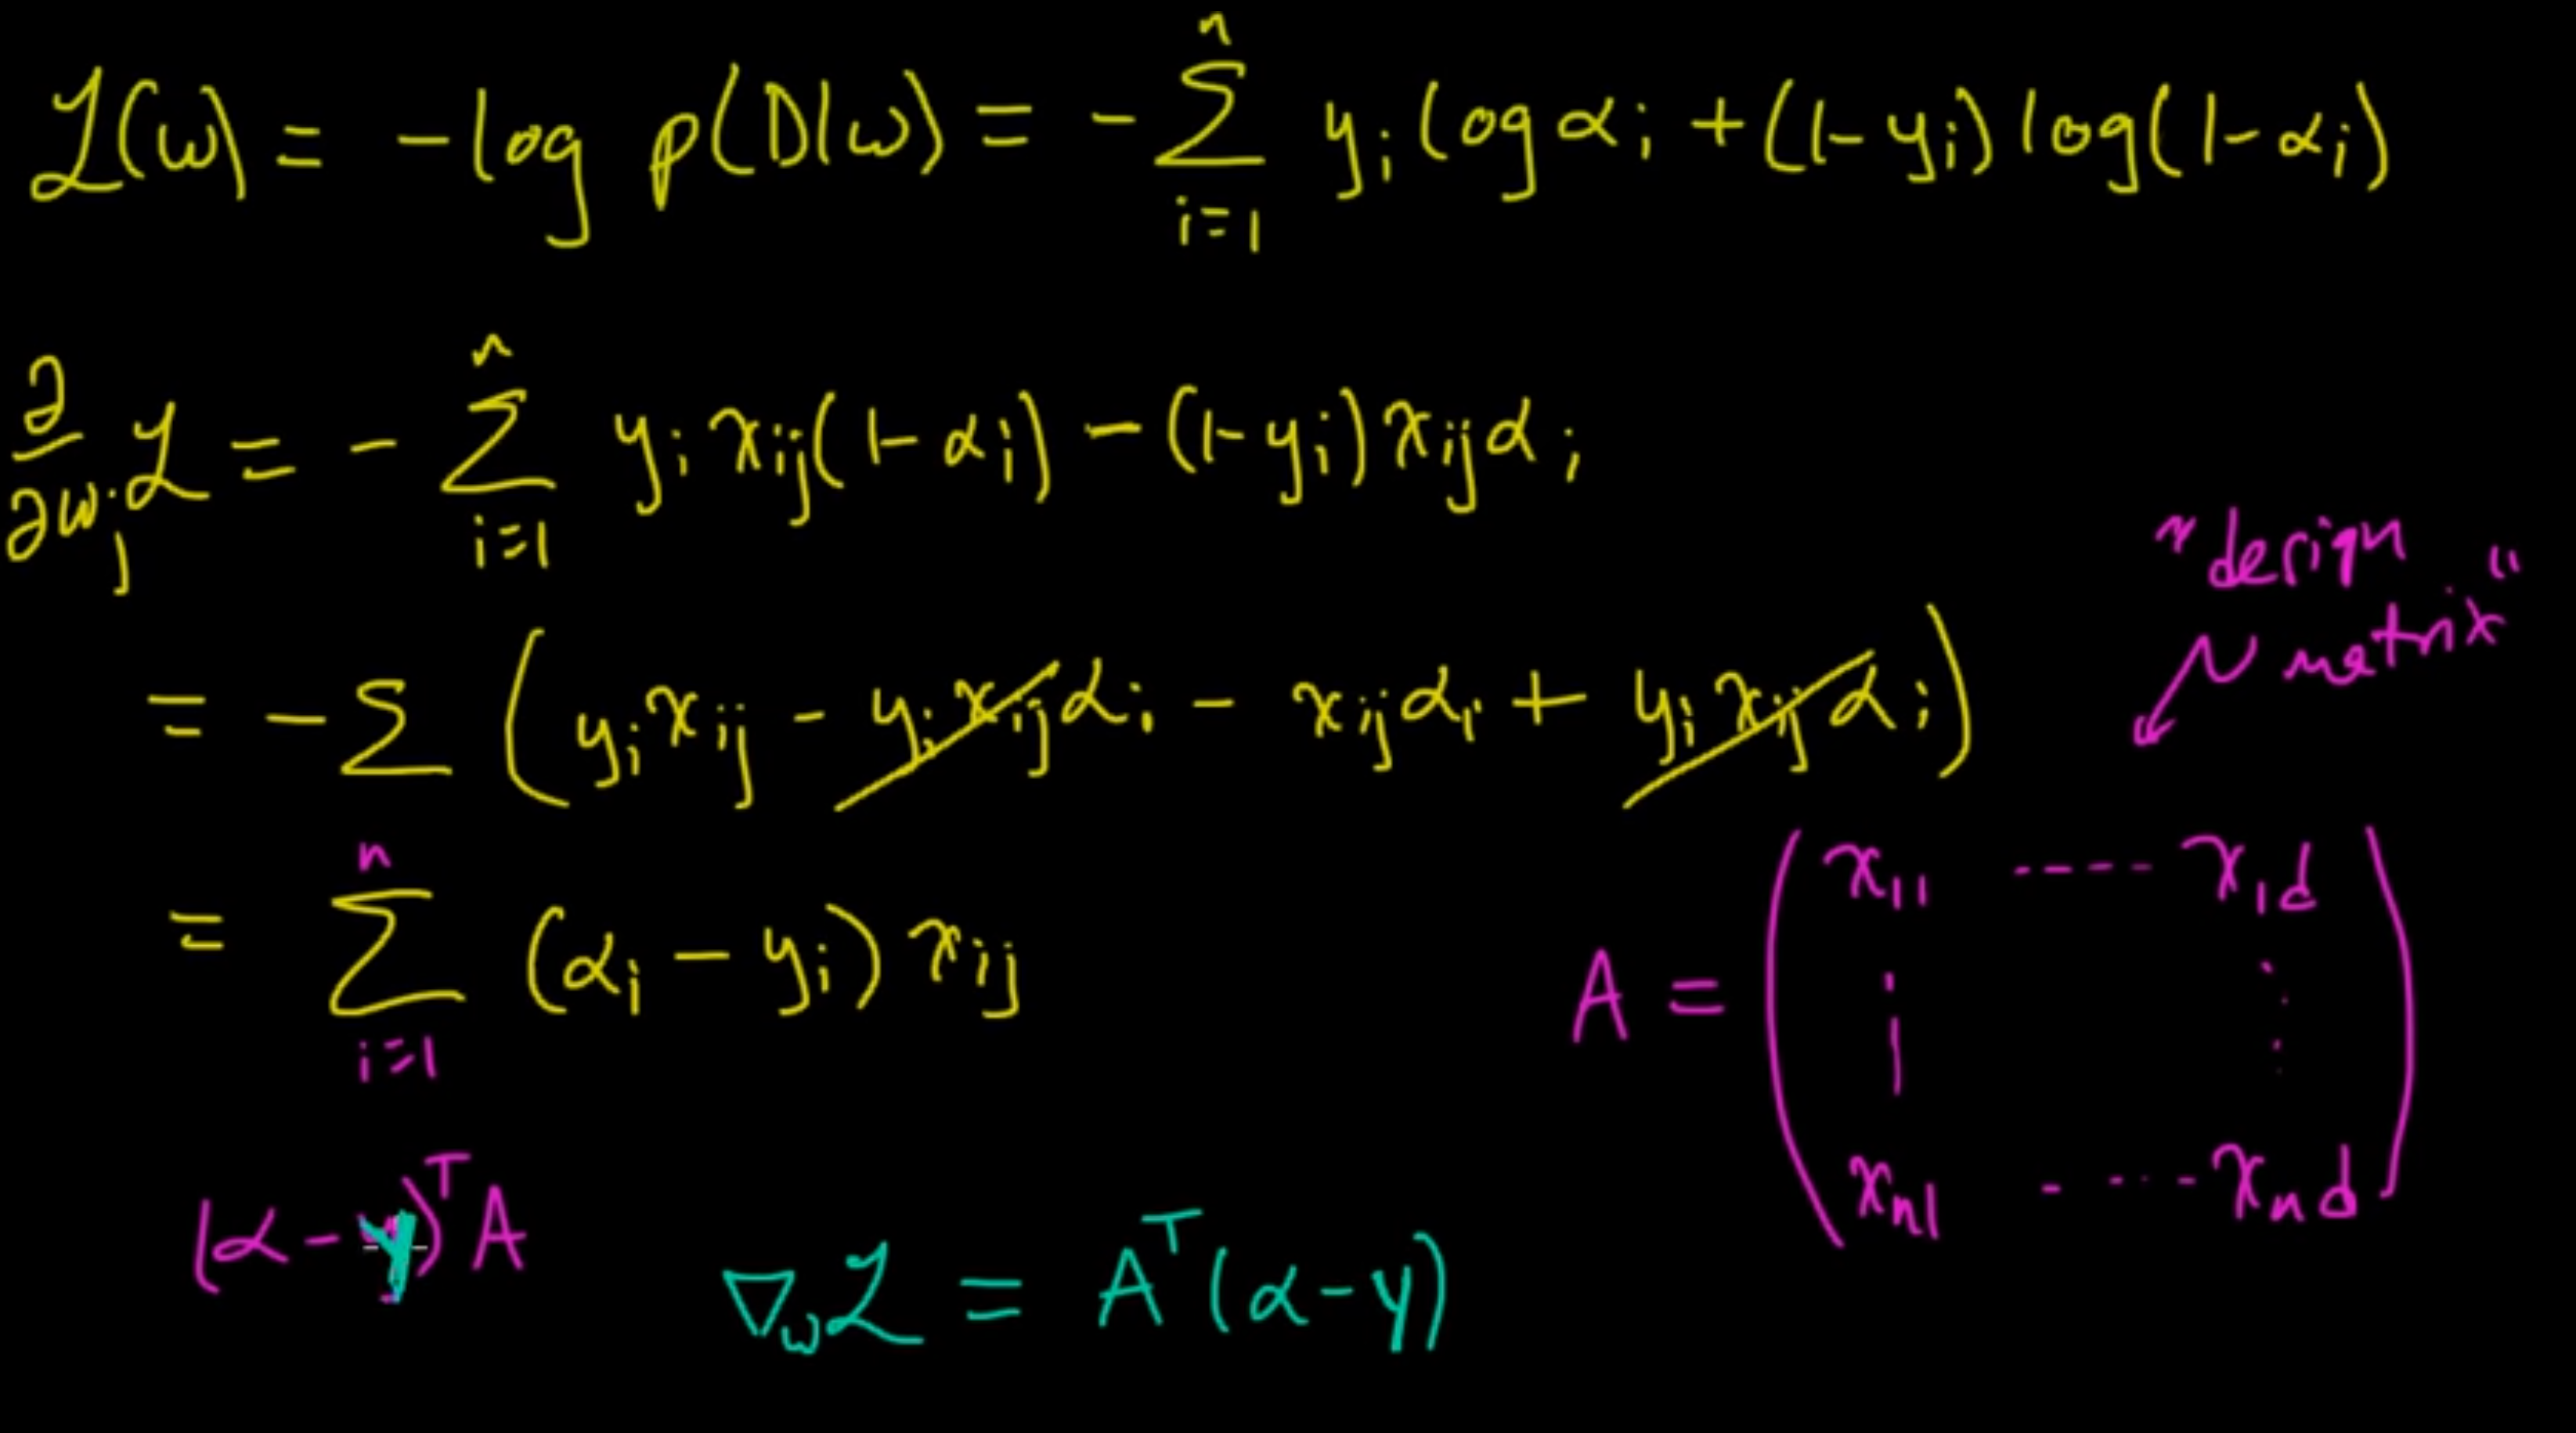 ℒ(w) = -log p(D|w) = - ∑_{i=1}^{n} y_i log α_i + (1-y_i) log(1-α_i)
∂/∂w_j ℒ = - ∑_{i=1}^{n} y_i x_ij (1-α_i) - (1-y_i) x_ij α_i
= -∑ (y_i x_ij - y_i x_ij α_i - x_ij α_i + y_i x_ij α_i)
= ∑_{i=1}^{n} (α_i - y_i) x_ij
"design
matrix"
A = ( x_11 ---- x_1d
⋮ ⋮
x_n1 - ---- x_nd )
(α - y)^T A
∇_w ℒ = A^T (α - y)